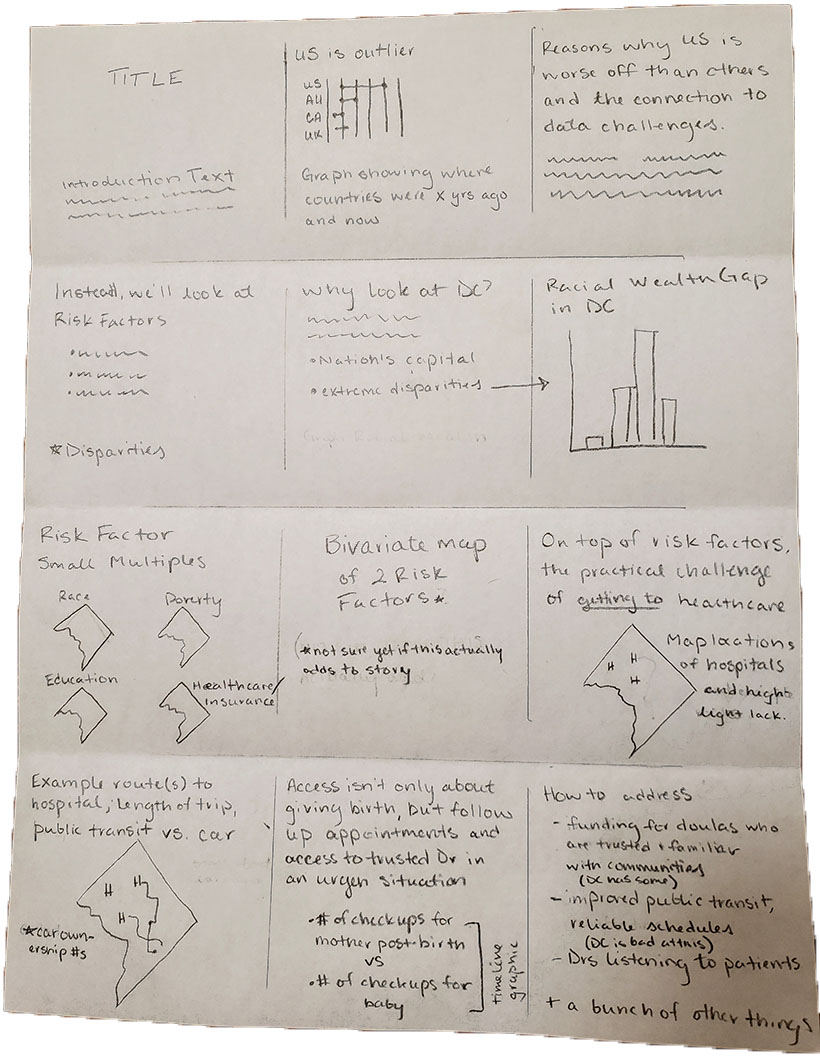 TITLE
Introduction Text
US is outlier
US
AU
CA
UK
Graph showing where
countries were x yrs ago
and now
Reasons why US is
worse off than others
and the connection to
data challenges.
Instead, we'll look at
Risk Factors
*Disparities
Why look at DC?
•Nation's capital
•extreme disparities
Racial Wealth Gap
in DC
Risk Factor
Small Multiples
Race
Poverty
Education
Healthcare/
insurance
Bivariate map
of 2 Risk
Factors*
(*not sure yet if this actually
adds to story
On top of risk factors,
the practical challenge
of getting to healthcare
H
H
H
Map locations
of hospitals
and high-
light lack.
Example route(s) to
hospital, length of trip,
public transit vs. car
H
H
*car own-
ership #s
Access isn't only about
giving birth, but follow
up appointments and
access to trusted Dr in
an urgen situation
•# of checkups for
mother post-birth
vs
•# of checkups for
baby
timeline
graphic
How to address
- funding for doulas who
are trusted + familiar
with communities
(DC has some)
- improved public transit,
reliable schedules
(DC is bad at this)
- Drs listening to patients
+ a bunch of other things